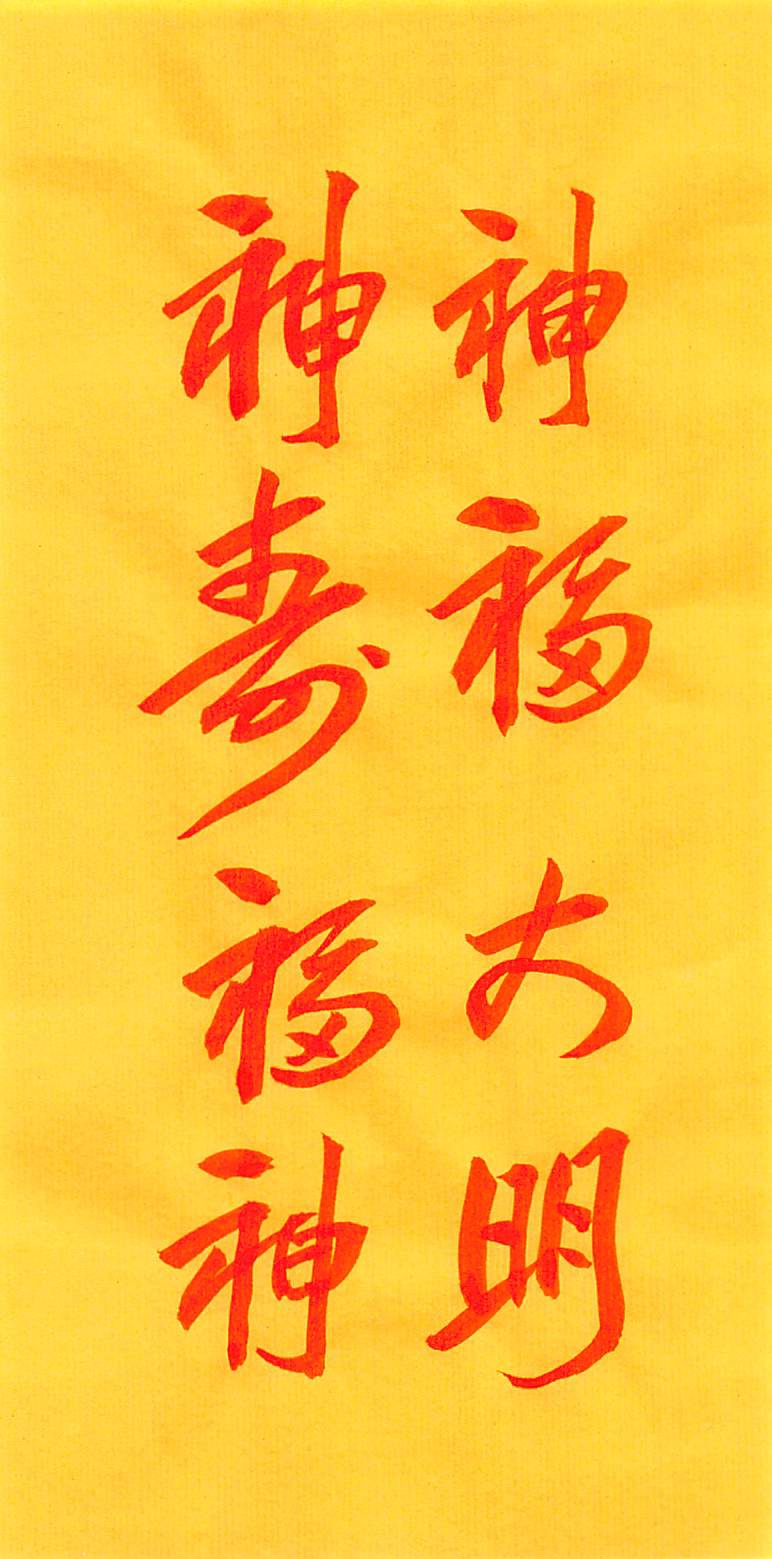 神福大明
神寿福神